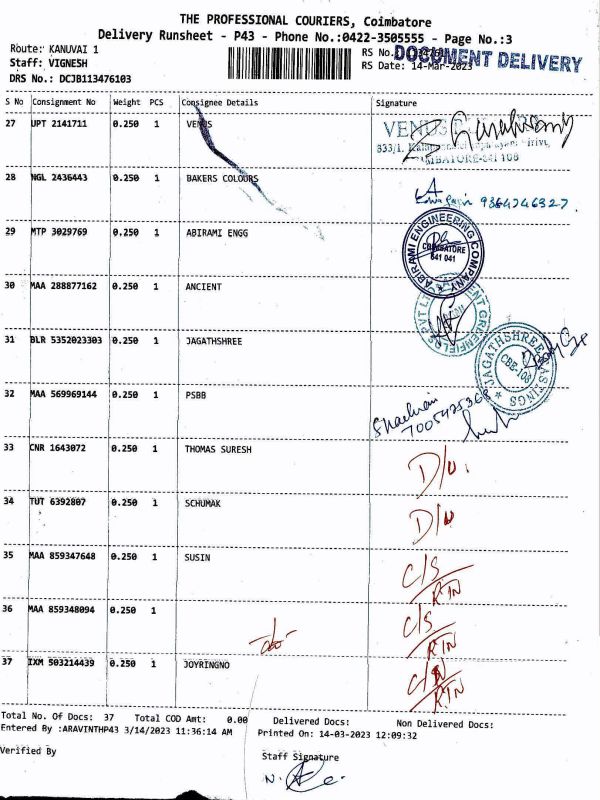 THE PROFESSIONAL COURIERS, Coimbatore
Delivery Runsheet - P43 - Phone No.:0422-3505555 - Page No.:3
Route: KANUVAI 1
Staff: VIGNESH
DRS No.: DCJB113476103
RS No.:
DOCUMENT DELIVERY
RS Date: 14-Mar-2023
S No Consignment No Weight PCS Consignee Details Signature
27 UPT 2141711 0.250 1 VENUS
VENUS
833/1,
COIMBATORE-641 108
28 NGL 2436443 0.250 1 BAKERS COLOURS
29 MTP 3029769 0.250 1 ABIRAMI ENGG
ABIRAMI ENGINEERING COMPANY
COIMBATORE
641 041
30 MAA 288877162 0.250 1 ANCIENT
GREENFIELDS PVT LTD
31 BLR 5352023303 0.250 1 JAGATHSHREE
JAGATHSHREE CASTINGS
CBE-108
32 MAA 569969144 0.250 1 PSBB
7005425368
33 CNR 1643072 0.250 1 THOMAS SURESH D/U.
34 TUT 6392807 0.250 1 SCHUMAK D/U
35 MAA 859347648 0.250 1 SUSIN C/S
RTN
36 MAA 859348094 0.250 1 -do- C/S
RTN
37 IXM 503214439 0.250 1 JOYRINGNO
RTN
Total No. Of Docs: 37 Total COD Amt: 0.00 Delivered Docs: Non Delivered Docs:
Entered By :ARAVINTHP43 3/14/2023 11:36:14 AM Printed On: 14-03-2023 12:09:32
Verified By
Staff Signature